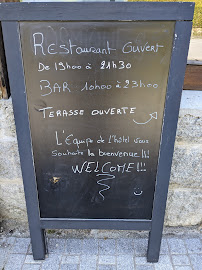 Restaurant Ouvert
De 19h00 à 21h30
BAR 10h00 à 23h00
TERASSE OUVERTE
L'Equipe de l'hôtel vous
Souhaite la bienvenue !!!
WELCOME!!!